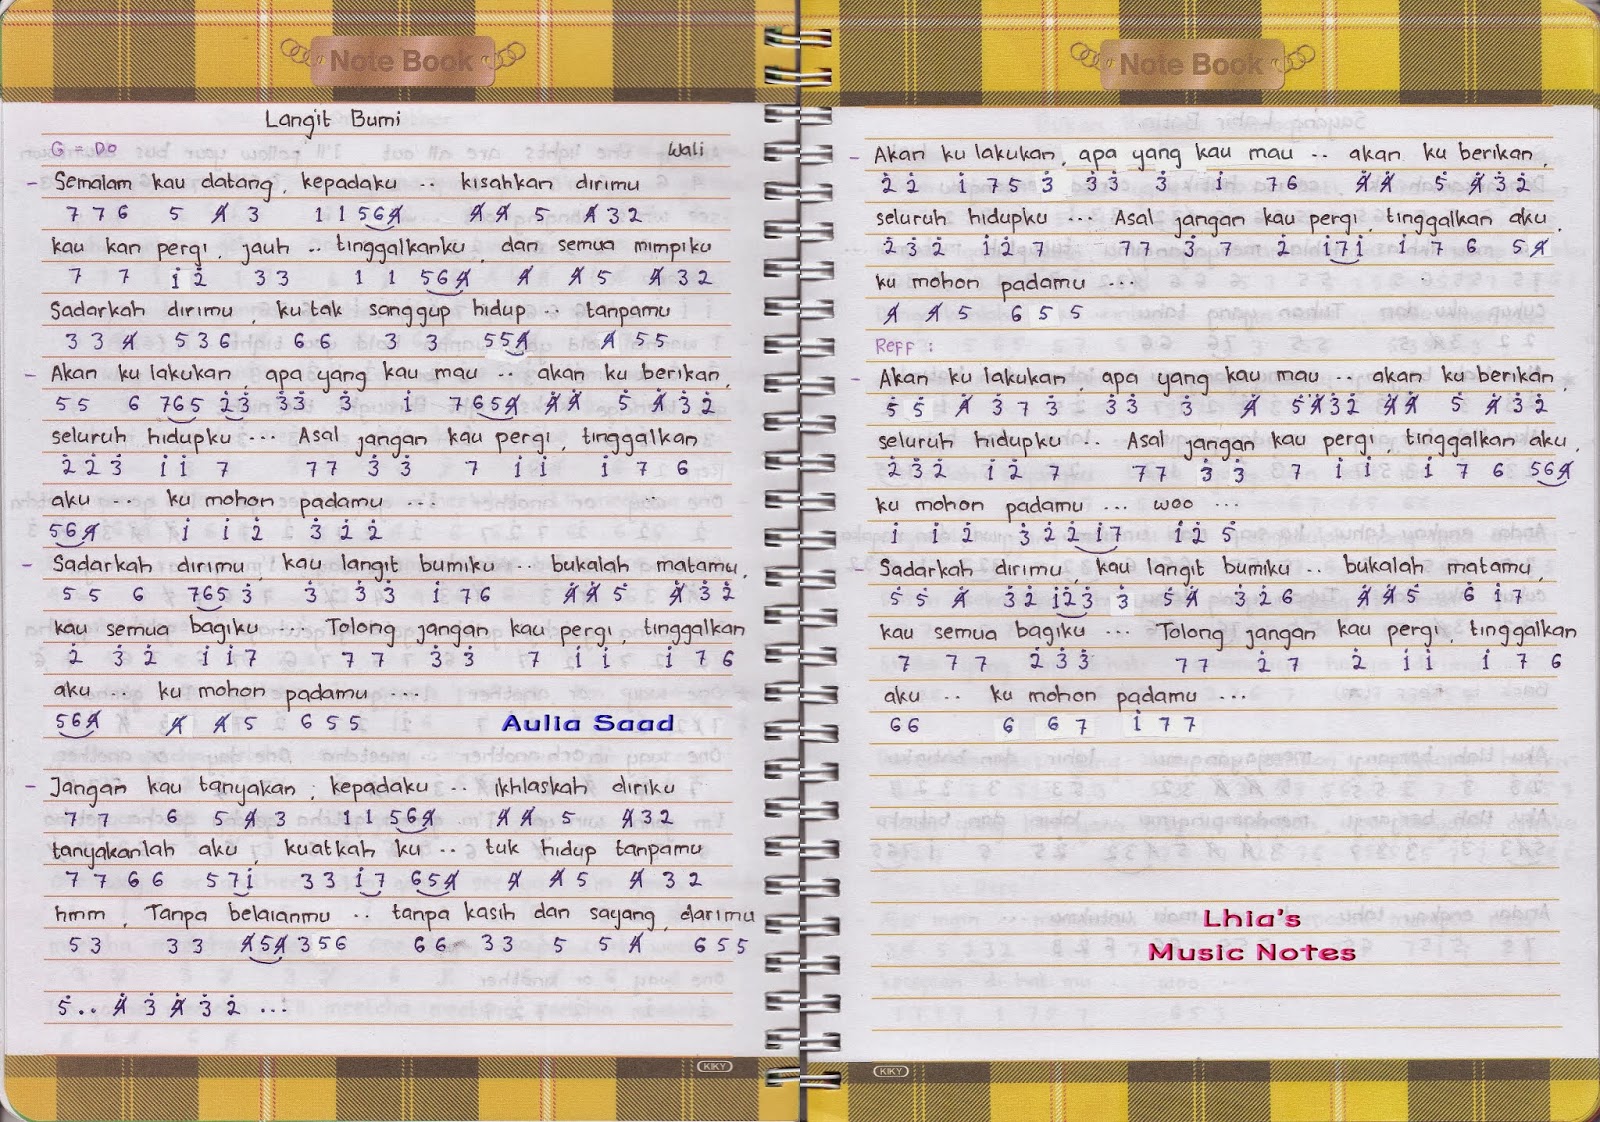 Note Book
Langit Bumi
G = Do Wali
- Semalam kau datang, kepadaku .. kisahkan dirimu
7 7 6 5 4̸ 3 1 1 5 6 4̸ 4̸ 4̸ 5 4̸ 3 2
kau kan pergi, jauh .. tinggalkanku, dan semua mimpiku
7 7 1̇ 2̇ 3 3 1 1 5 6 4̸ 4̸ 4̸ 5 4̸ 3 2
Sadarkah dirimu, ku tak sanggup hidup .. tanpamu
3 3 4̸ 5 3 6 6 6 3 3 5 5 4̸ 4̸ 5 5
- Akan ku lakukan, apa yang kau mau .. akan ku berikan,
5 5 6 7 6 5 2̇ 3̇ 3̇ 3̇ 3̇ 1̇ 7 6 5 4̸ 4̸̇ 4̸̇ 5̇ 4̸̇ 3̇ 2̇
seluruh hidupku ... Asal jangan kau pergi, tinggalkan
2̇ 2̇ 3̇ 1̇ 1̇ 7 7 7 3̇ 3̇ 7 1̇ 1̇ 1̇ 7 6
aku ... ku mohon padamu ...
5 6 4̸ 1̇ 1̇ 2̇ 3̇ 2̇ 2̇
- Sadarkah dirimu, kau langit bumiku .. bukalah matamu,
5 5 6 7 6 5 3̇ 3̇ 3̇ 3̇ 1̇ 7 6 4̸̇ 4̸̇ 5̇ 4̸̇ 3̇ 2̇
kau semua bagiku ... Tolong jangan kau pergi, tinggalkan
2̇ 3̇ 2̇ 1̇ 1̇ 7 7 7 3̇ 3̇ 7 1̇ 1̇ 1̇ 7 6
aku .. ku mohon padamu ...
5 6 4̸ 4̸ 4̸ 5 6 5 5 Aulia Saad
- Jangan kau tanyakan, kepadaku .. ikhlaskah diriku
7 7 6 5 4̸ 3 1 1 5 6 4̸ 4̸ 4̸ 5 4̸ 3 2
tanyakanlah aku, kuatkah ku .. tuk hidup tanpamu
7 7 6 6 5 7 1̇ 3 3 1̇ 7 6 5 4̸ 4̸ 4̸ 5 4̸ 3 2
hmm, Tanpa belaianmu .. tanpa kasih dan sayang, darimu
5 3 3 3 4̸ 5 4̸ 3 5 6 6 6 3 3 5 5 4̸ 6 5 5
5̇ .. 4̸̇ 3̇ 4̸̇ 3̇ 2̇ ...
KIKY
Note Book
- Akan ku lakukan, apa yang kau mau .. akan ku berikan,
2̇ 2̇ 1̇ 7 5 3̇ 3̇ 3̇ 3̇ 1̇ 7 6 4̸̇ 4̸̇ 5̇ 4̸̇ 3̇ 2̇
seluruh hidupku ... Asal jangan kau pergi, tinggalkan aku,
2̇ 3̇ 2̇ 1̇ 2̇ 7 7 7 3̇ 7 2̇ 1̇ 7 1̇ 1̇ 7 6 5 4̸
ku mohon padamu ...
4̸ 4̸ 5 6 5 5
Reff :
- Akan ku lakukan, apa yang kau mau .. akan ku berikan
5̇ 5̇ 4̸̇ 3̇ 7 3̇ 3̇ 3̇ 3̇ 4̸̇ 5̇ 4̸̇ 3̇ 2̇ 4̸̇ 4̸̇ 5̇ 4̸̇ 3̇ 2̇
seluruh hidupku .. Asal jangan kau pergi, tinggalkan aku,
2̇ 3̇ 2̇ 1̇ 2̇ 7 7 7 3̇ 3̇ 7 1̇ 1̇ 1̇ 7 6 5 6 4̸
ku mohon padamu ... woo ...
1̇ 1̇ 2̇ 3̇ 2̇ 2̇ 1̇ 7 1̇ 2̇ 5̇
- Sadarkah dirimu, kau langit bumiku .. bukalah matamu,
5̇ 5̇ 4̸̇ 3̇ 2̇ 1̇ 2̇ 3̇ 3̇ 5̇ 4̸̇ 3̇ 2̇ 6 4̸̇ 4̸̇ 5̇ 6̇ 1̇ 7
kau semua bagiku ... Tolong jangan kau pergi, tinggalkan
7 7 7 2̇ 3̇ 3̇ 7 7 2̇ 7 2̇ 1̇ 1̇ 1̇ 7 6
aku .. ku mohon padamu ...
6 6 6 6 7 1̇ 7 7
Lhia's
Music Notes
KIKY